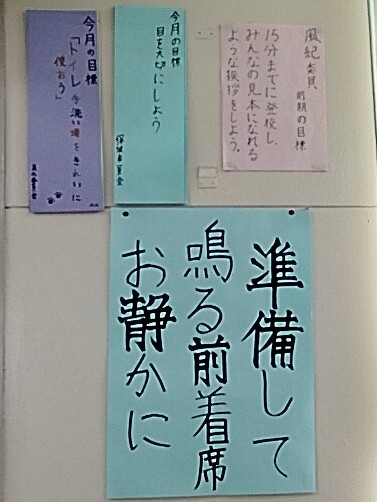 風紀委員
前期の目標
15分までに登校し、
みんなの見本になれる
ような挨拶をしよう。
今月の目標
目を大切にしよう
保健委員会
今月の目標
「トイレ手洗い場をきれいに
使おう」
準備して
鳴る前着席
お静かに